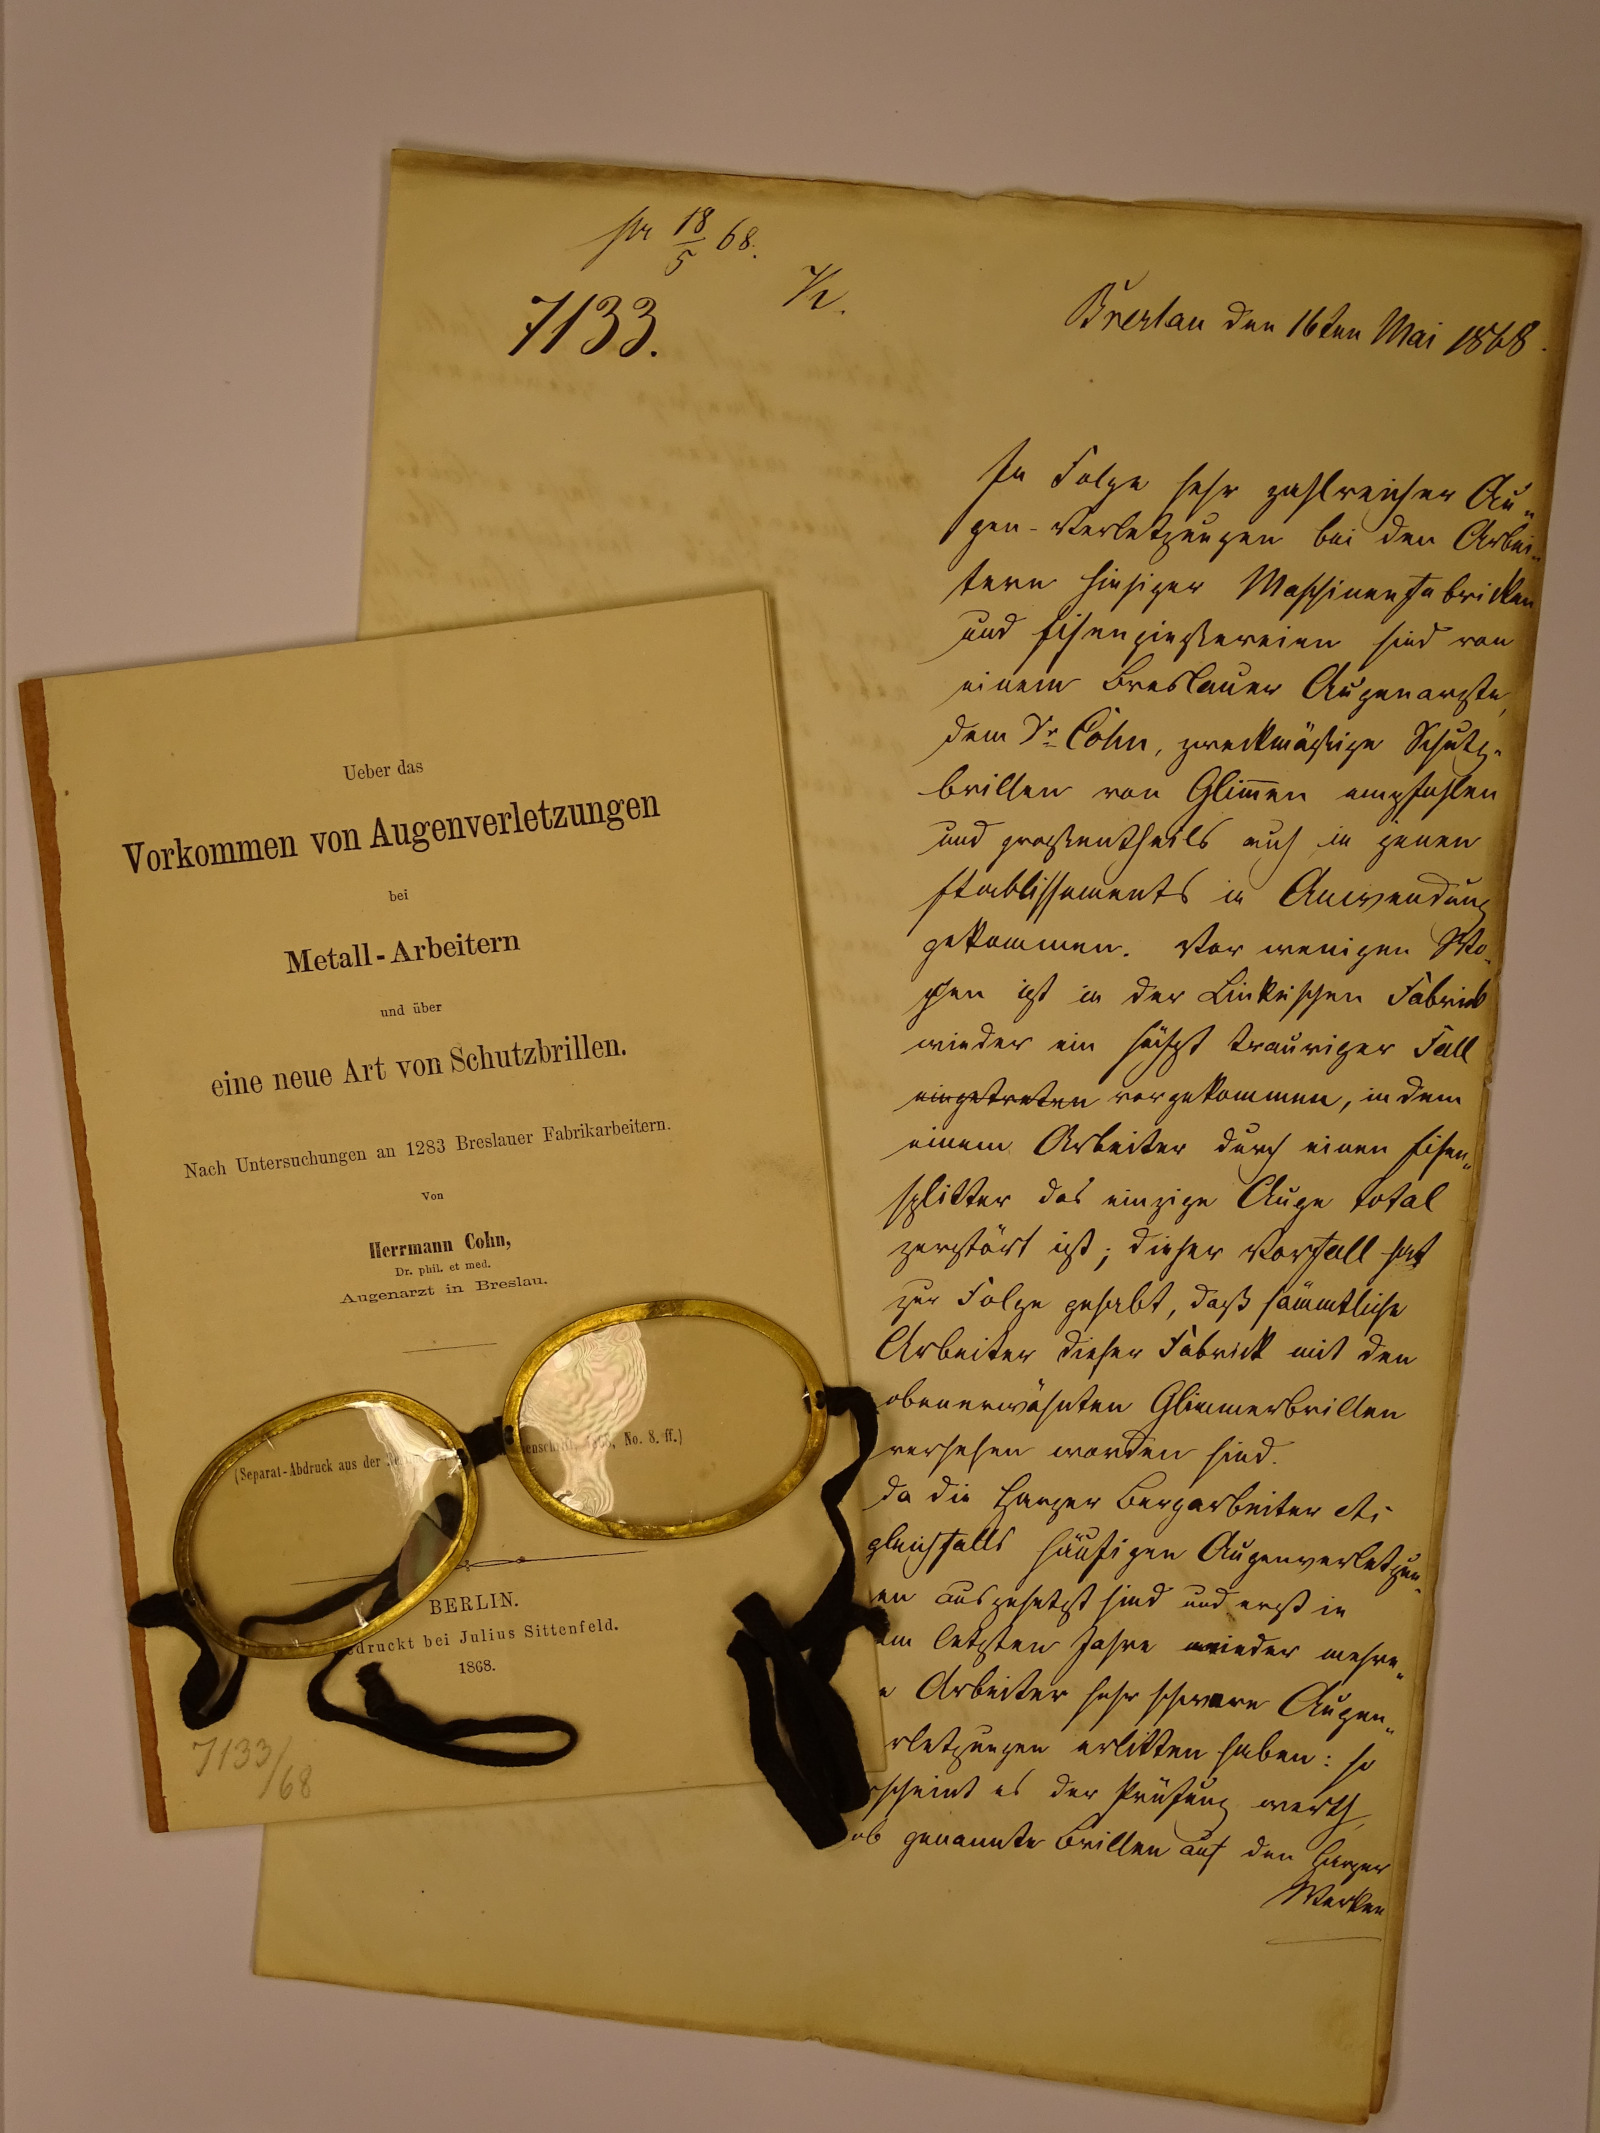 pr 18/5 68.
7133.
Breslau den 16ten Mai 1868.
In Folge sehr zahlreicher Au-
gen-Verletzungen bei den Arbei-
tern hiesiger Maschinenfabricken
und Eisengießereien sind von
einem Breslauer Augenarzte,
dem Dr Cohn, zweckmäßige Schutz-
brillen von Glimmer empfohlen
und großentheils auch in jenen
Etablissements in Anwendung
gekommen. Vor wenigen Wo-
chen ist in der Linkeschen Fabrick
wieder ein höchst trauriger Fall
eingetreten vorgekommen, in dem
einem Arbeiter durch einen Eisen-
splitter das einzige Auge total
zerstört ist; dieser Vorfall hat
zur Folge gehabt, daß sämmtliche
Arbeiter dieser Fabrick mit den
obenerwähnten Glimmerbrillen
versehen worden sind.
Da die Harzer Bergarbeiter
gleichfalls häufigen Augenverletzun-
en ausgesetzt sind und erst in
em letzten Jahre wieder mehre-
e Arbeiter sehr schwere Augen-
rletzungen erlitten haben: so
rscheint es der Prüfung werth,
ob genannte Brillen auf den Harzer
Werken
Ueber das
Vorkommen von Augenverletzungen
bei
Metall-Arbeitern
und über
eine neue Art von Schutzbrillen.
Nach Untersuchungen an 1283 Breslauer Fabrikarbeitern.
Von
Herrmann Cohn,
Dr. phil. et med.
Augenarzt in Breslau.
(Separat-Abdruck aus der No. 8. ff.)
BERLIN.
druckt bei Julius Sittenfeld.
1868.
7133/68